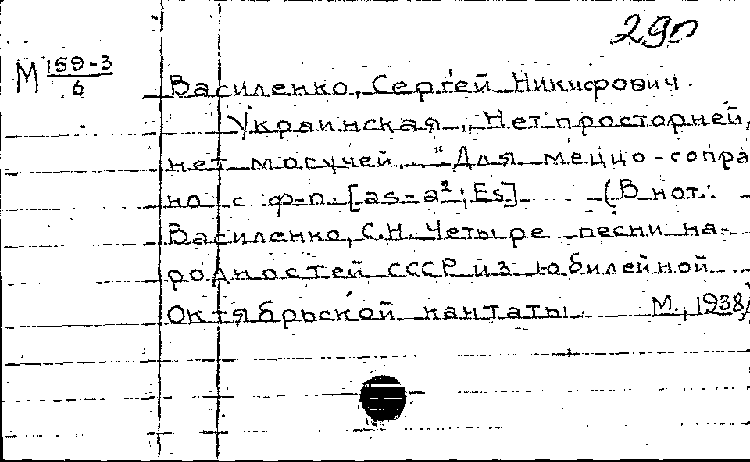 29п
М 159-3
6
Василенко, Сергей Никифорович.
Украинская „Нет просторней,
нет могучей..." Для меццо-сопра
но с ф-п. [as-a²; Es]. (В нот.:
Василенко, С.Н. Четыре песни на-
родностей СССР из юбилейной
Октябрьской кантаты. М., 1938)